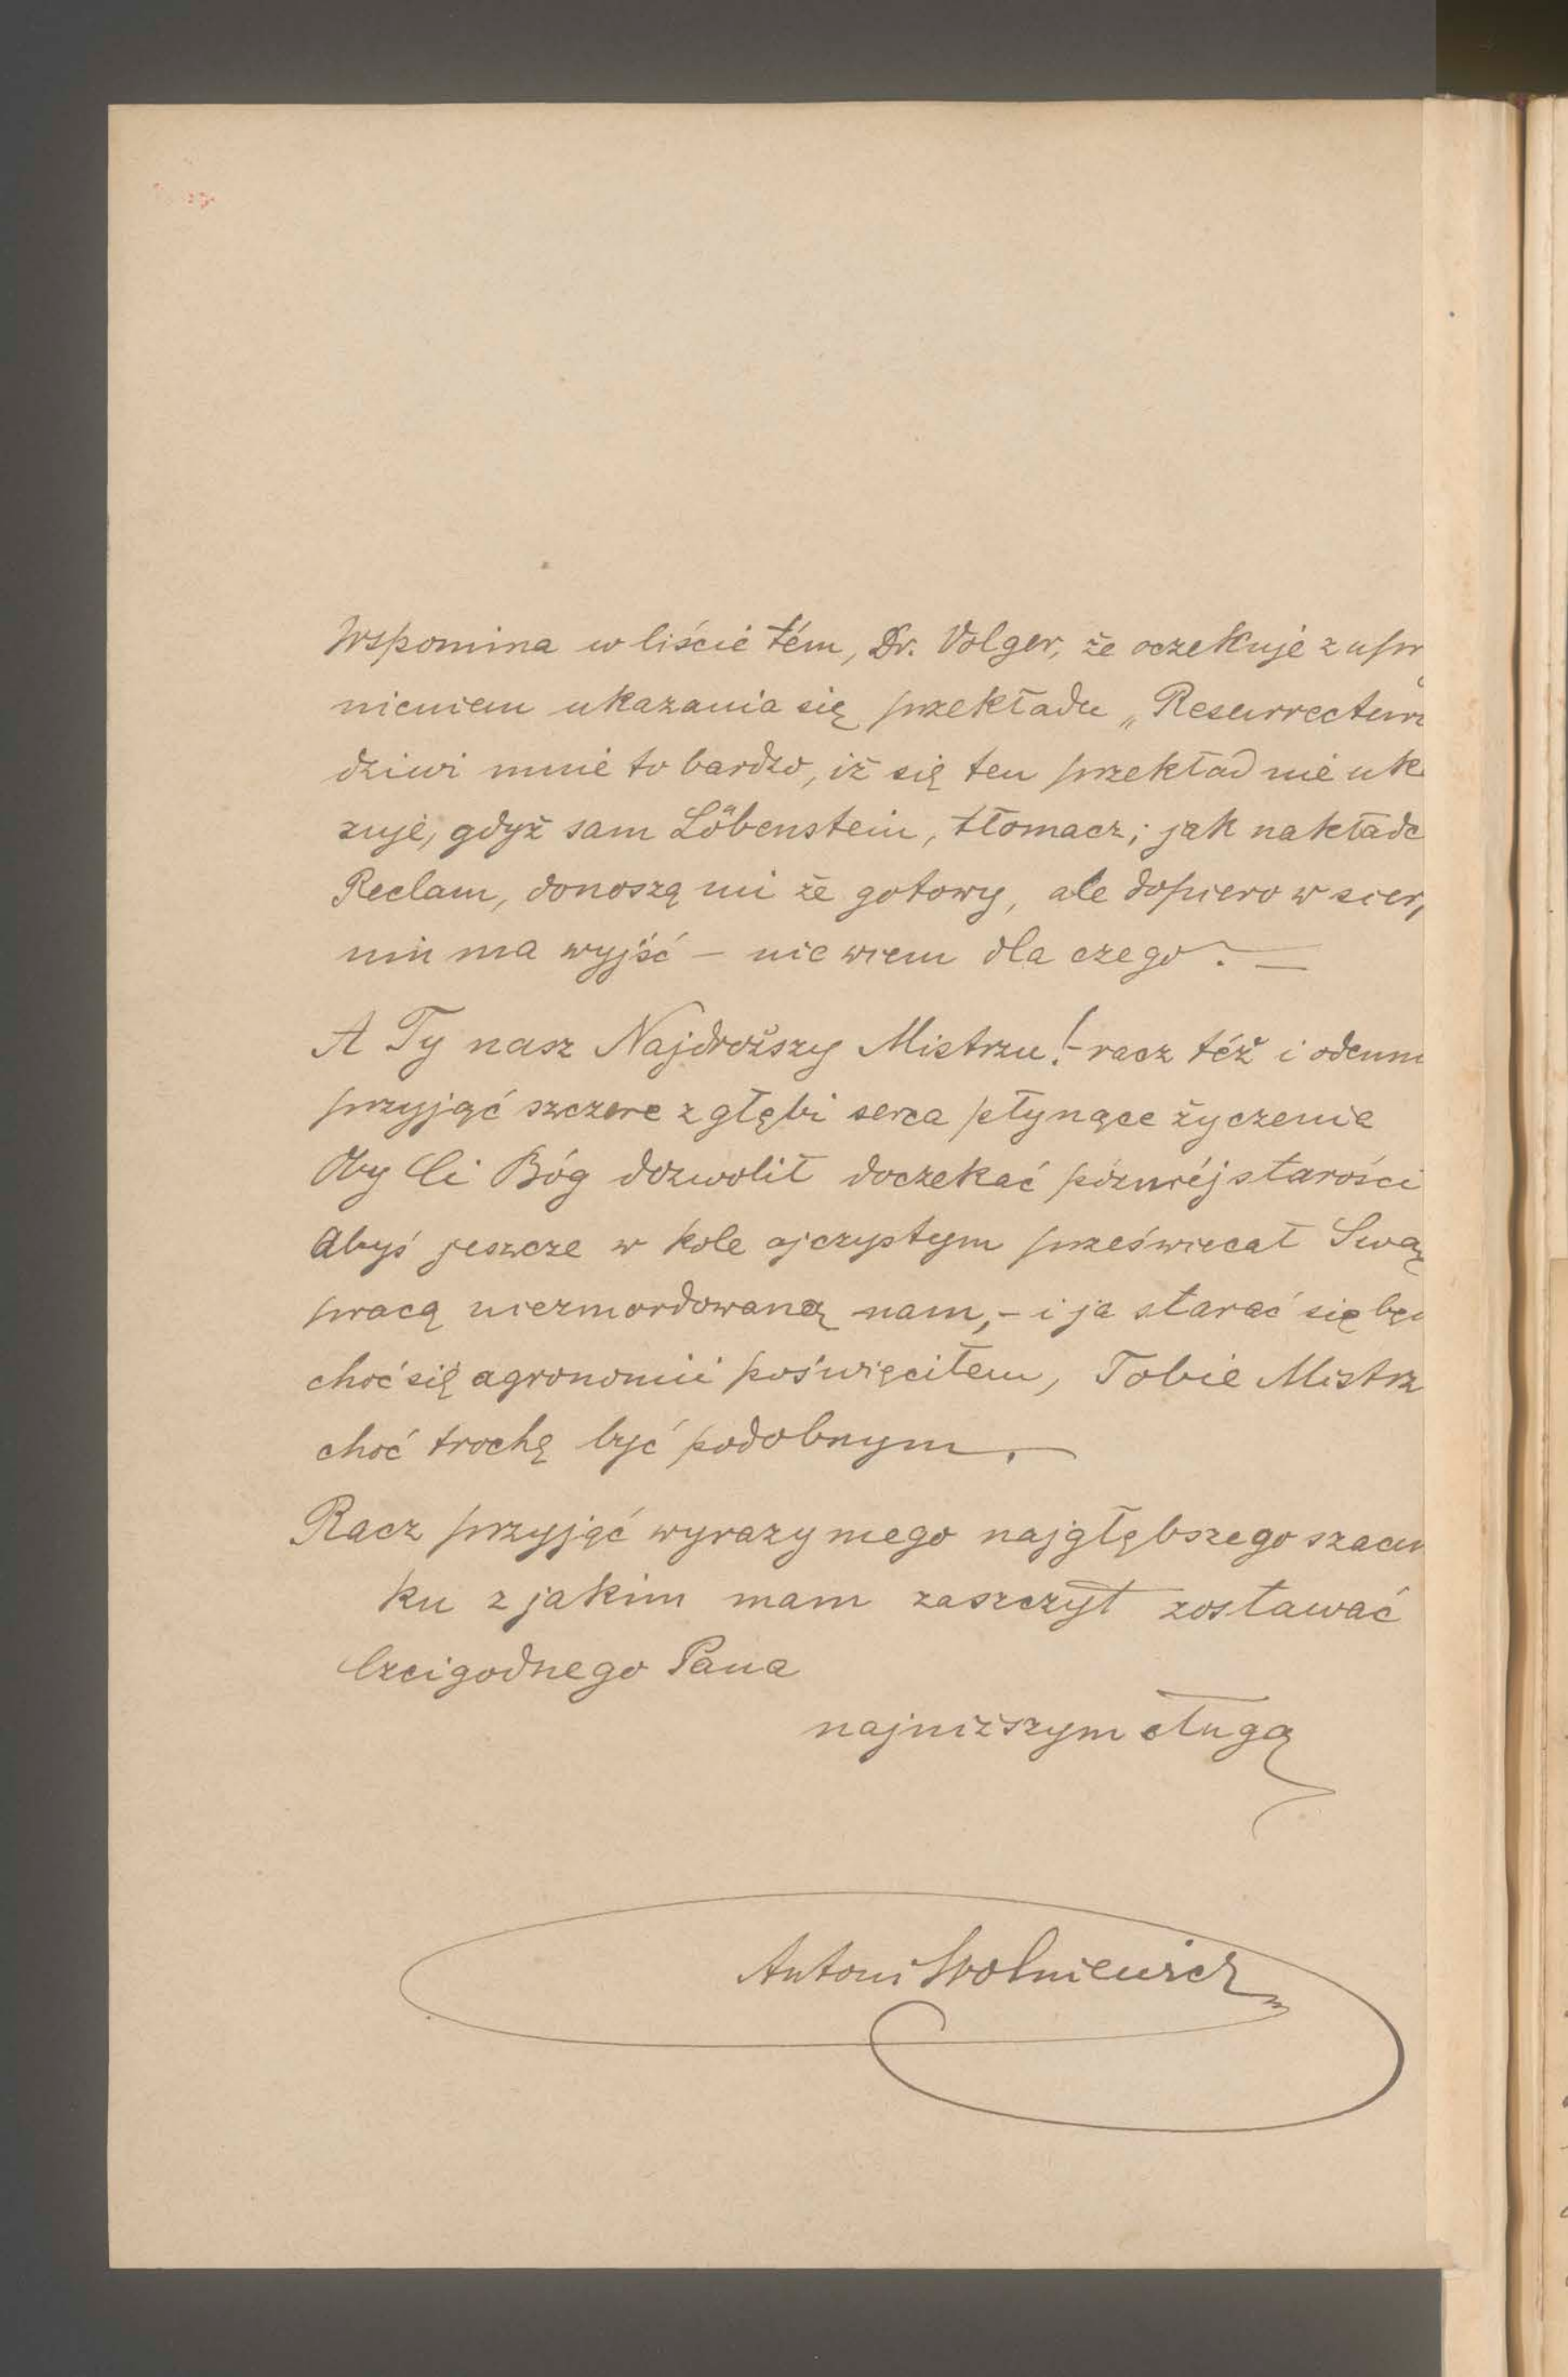 Wspomina w liście tém, Dr. Volger, że oczekuje z upr
nieniem ukazania się przekładu „Resurrectur
dziwi mnie to bardzo, iż się ten przekład nie uka
zuje, gdyż sam Löbenstein, tłomacz; jak nakładc
Reclam, donoszą mi że gotowy, ale dopiero w sierp
niu ma wyjść – nie wiem dla czego. —
A Ty nasz Najdroższy Mistrzu! – racz téż i odemn
przyjąć szczere z głębi serca płynące życzenia
Oby Ci Bóg dozwolił doczekać póznéj starości
Abyś jeszcze w kole ojczystym przeświecał Swą
pracą niezmordowaną nam, – i ja starać się będ
choć się agronomii poświęciłem, Tobie Mistrz
choć trochę być podobnym. —
Racz przyjąć wyrazy mego najgłębszego szacun
ku z jakim mam zaszczyt zostawać
Czcigodnego Pana
najniższym sługą
Antoni Wolniewicz